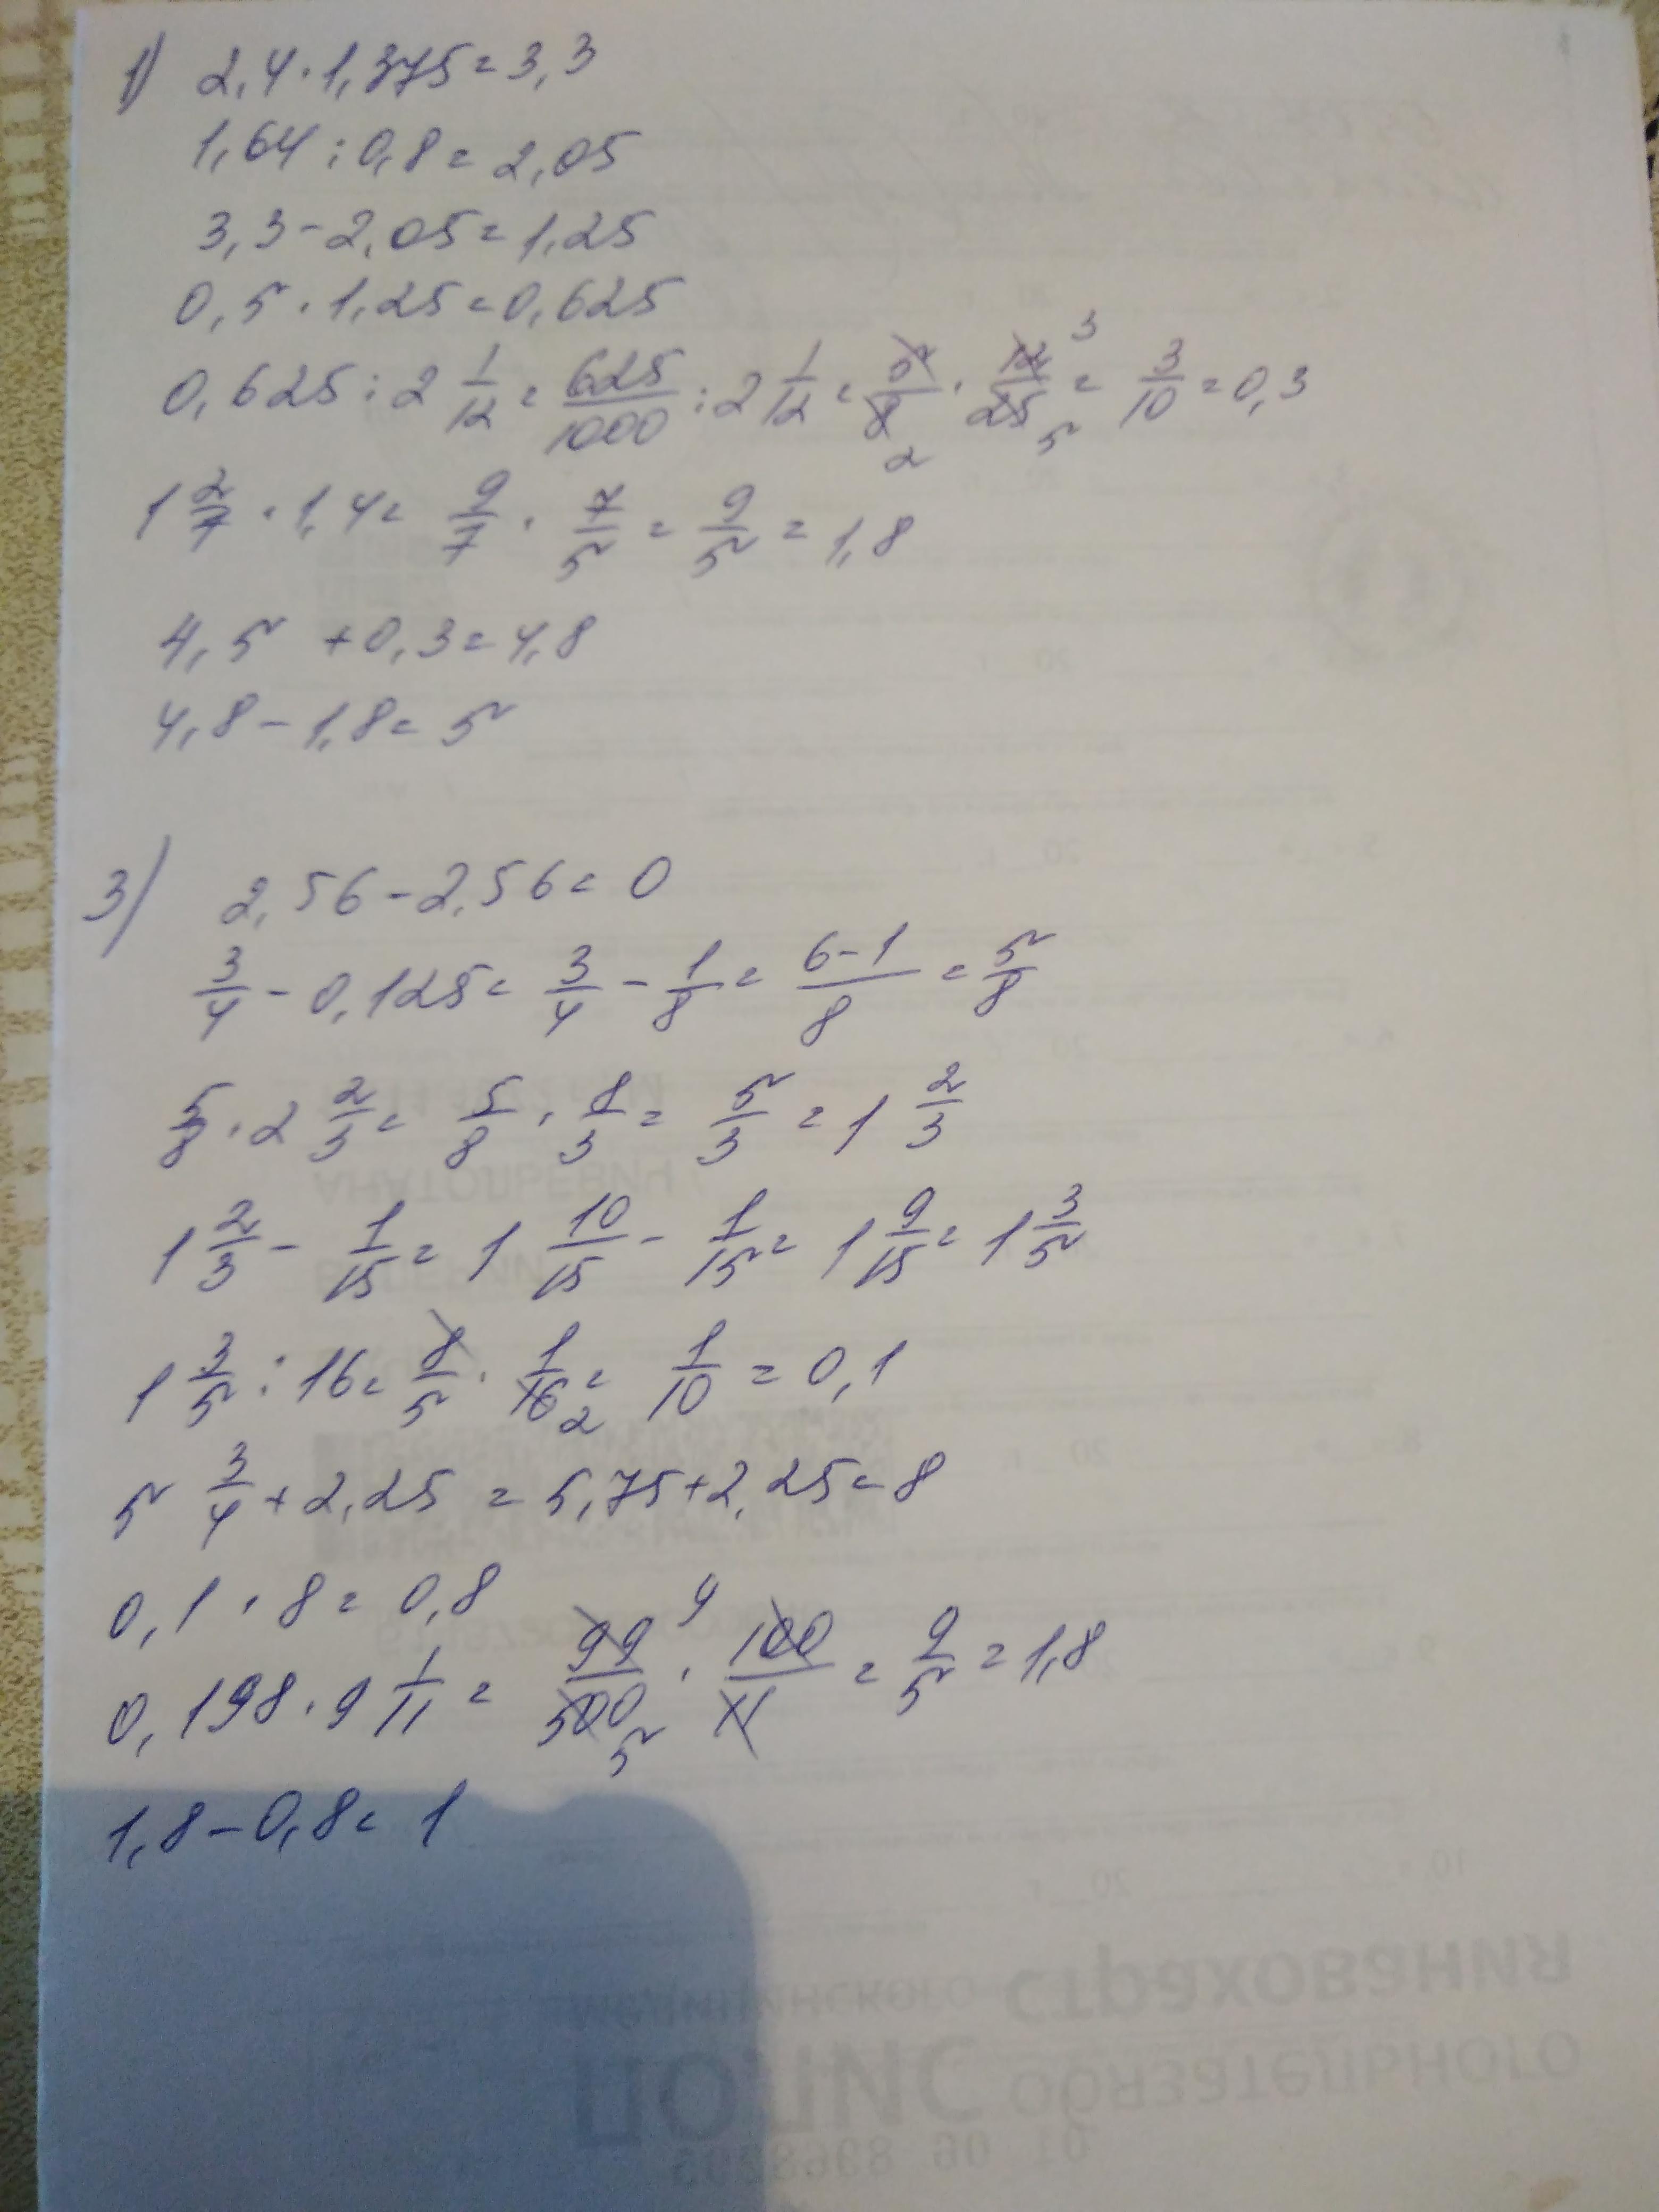 1) 2,4 · 1,375 = 3,3
1,64 : 0,8 = 2,05
3,3 - 2,05 = 1,25
0,5 · 1,25 = 0,625
0,625 : 2 1/12 = 625/1000 : 2 1/12 = 5/8 2 · 12/25 3 5 = 3/10 = 0,3
1 2/7 · 1,4 = 9/7 · 7/5 = 9/5 = 1,8
4,5 + 0,3 = 4,8
4,8 - 1,8 = 5
3) 2,56 - 2,56 = 0
3/4 - 0,125 = 3/4 - 1/8 = 6-1/8 = 5/8
5/8 · 2 2/3 = 5/8 · 8/3 = 5/3 = 1 2/3
1 2/3 - 1/15 = 1 10/15 - 1/15 = 1 9/15 = 1 3/5
1 3/5 : 16 = 8/5 · 1/16 2 = 1/10 = 0,1
5 3/4 + 2,25 = 5,75 + 2,25 = 8
0,1 · 8 = 0,8
0,198 · 9 1/11 = 99/500 9 5 · 100/11 = 9/5 = 1,8
1,8 - 0,8 = 1
страхования
медицинского
обязательного
ПОЛИС